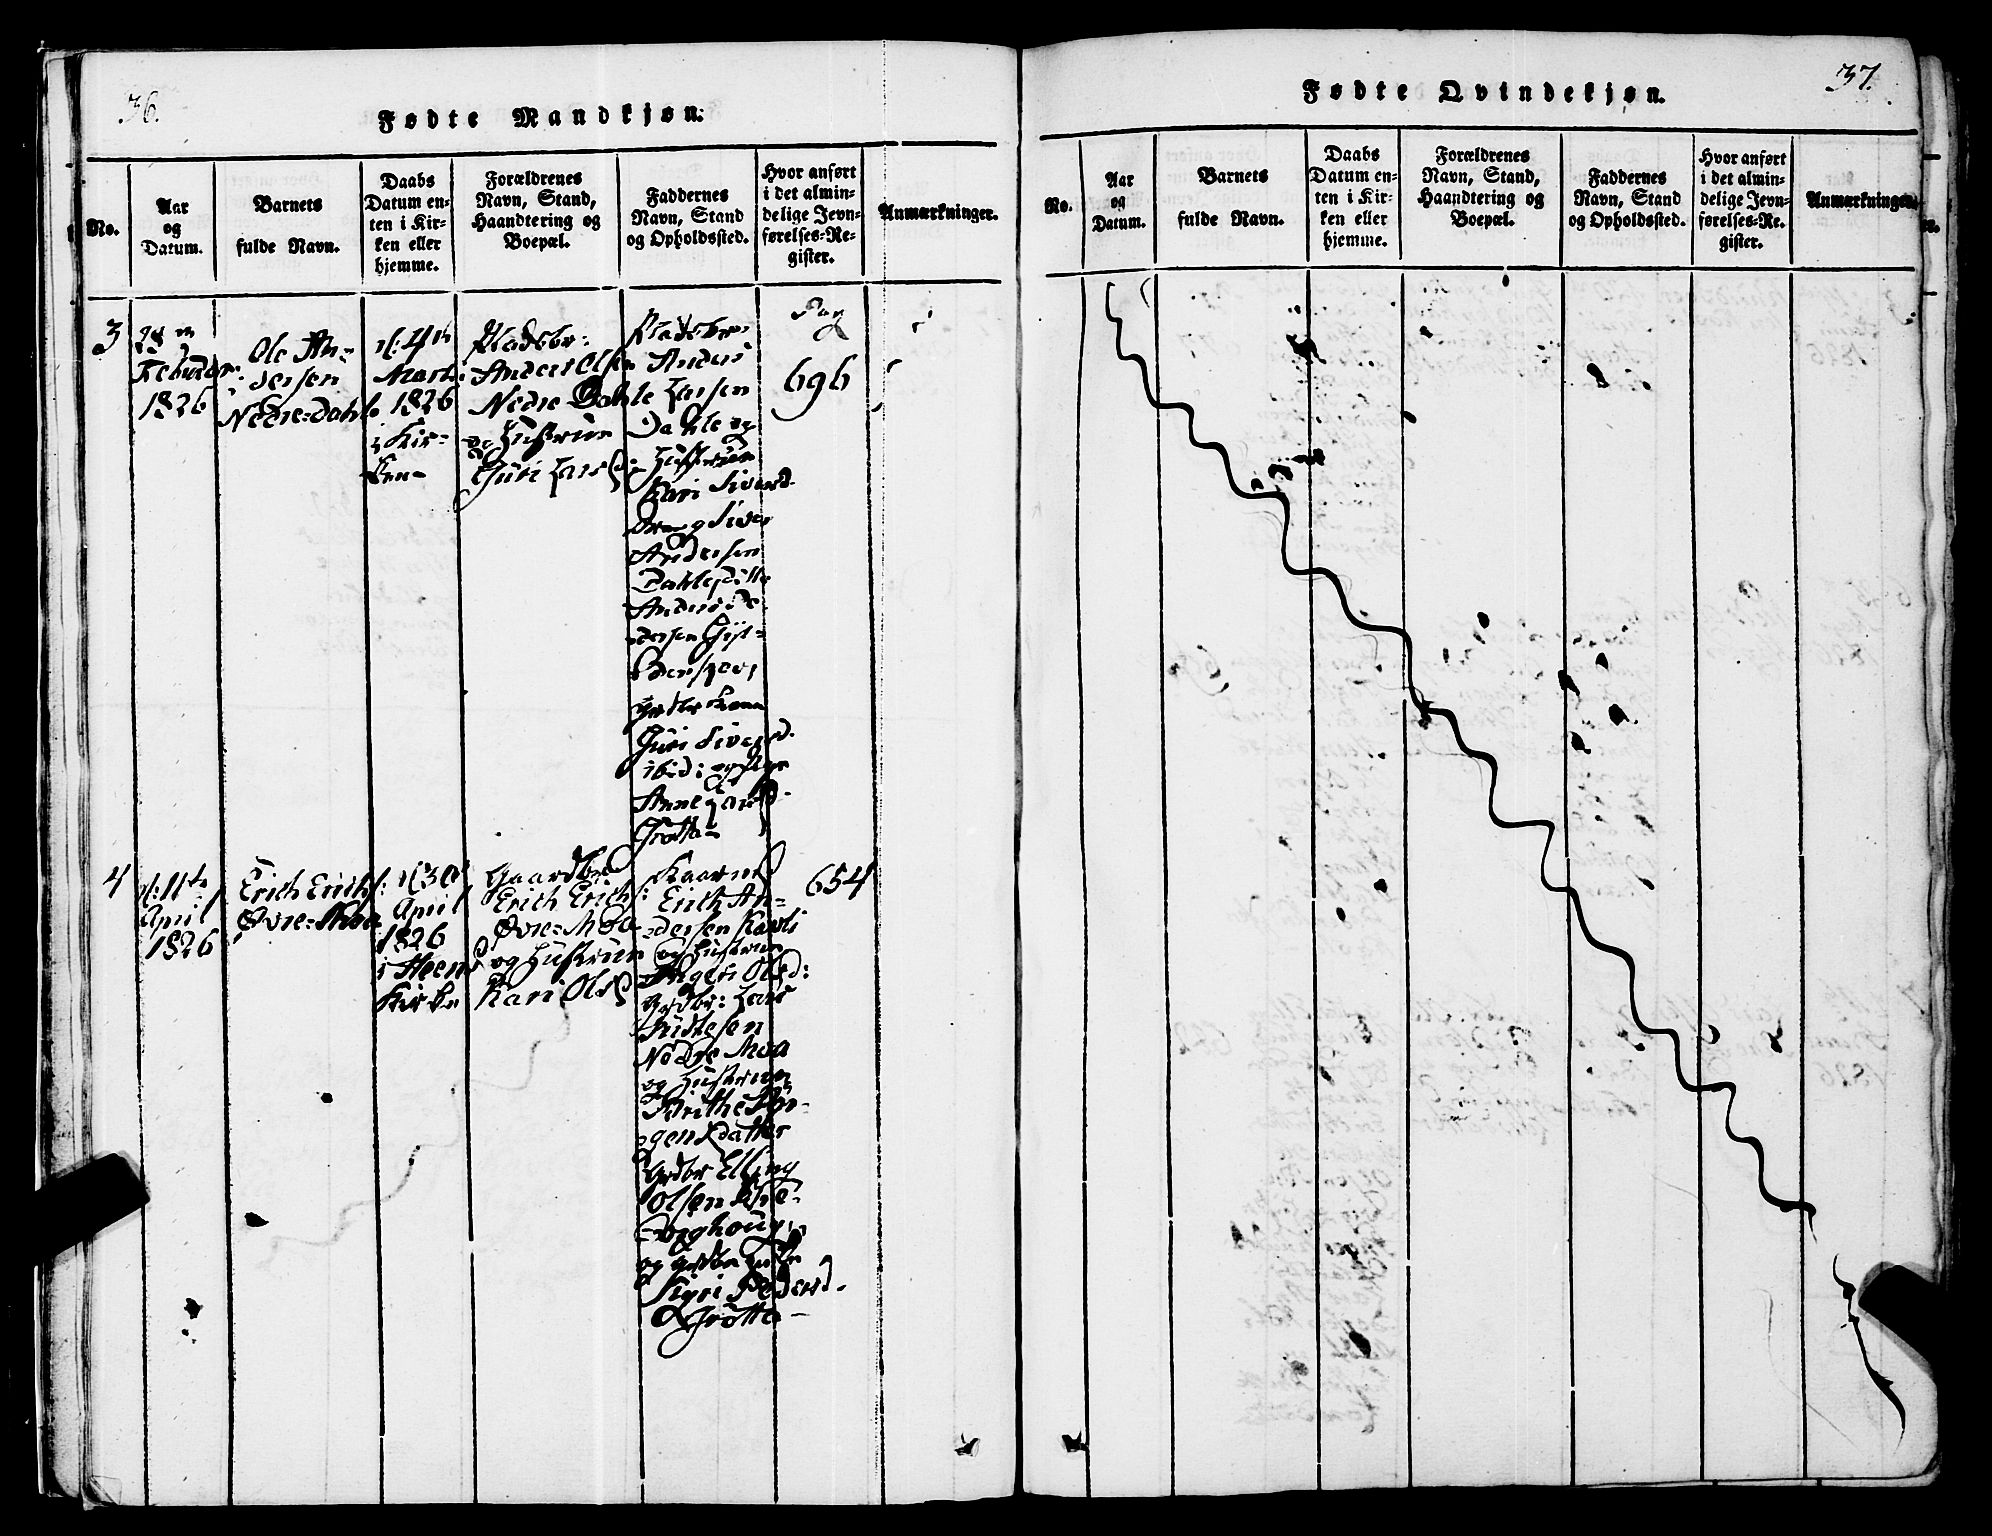 36.
Fødte Mandkjøn.
No.
Aar
og
Datum.
Barnets
fulde Navn.
Daabs
Datum en-
ten i Kir-
ken eller
hjemme.
Forældrenes
Navn, Stand,
Haandtering og
Boepæl.
Faddernes
Navn, Stand
og Opholdssted.
Hvor anført
i det almin-
delige Jevn-
førelses-Re-
gister.
Anmærkninger.
3
Februar
1826
Ole An-
dersen
Nedre-Dahle
d: 4de
Marti
1826
i Kir-
ken-
Pladsbr:
Anders Olsen
Nedre Dahle
og Hustrue
Guri Larsd:
Pladsbr:
Anders
Larsen
Dahle og
Hustrue
Kari Siversd.
Dreng Siver
Andersen
Dahle, ditto
Anders
dersen
Guri Siversd.
ibid: og Pige
Anne Larsd.
Grøtte-
Pag
696
4
d: 11te
April
1826
Erich Erichs:
Øvre-Moe
d: 30
April
1826
i Steens
Kirke
Gaardbr
Erich Erichs:
Øvre-Moe
og Hustrue
Kari Olsd
Kaarm
Erich An-
dersen Karli
og Hustrue
Ingeri Olsd:
Grdbr: Lars
Knudtesen
Nedre Moa
og Hustrue
Birithe Jør-
gensdatter
Grdbr Elling
Olsen
og
Sigri Pedersd.
Grøtte-
654
37.
Fødte Qvindekjøn.
No.
Aar
og
Datum.
Barnets
fulde Navn.
Daabs
Datum en-
ten i Kir-
ken eller
hjemme.
Forældrenes
Navn, Stand,
Haandtering og
Boepæl.
Faddernes
Navn, Stand
og Opholdssted.
Hvor anført
i det almin-
delige Jevn-
førelses-Re-
gister.
Anmærkninger.